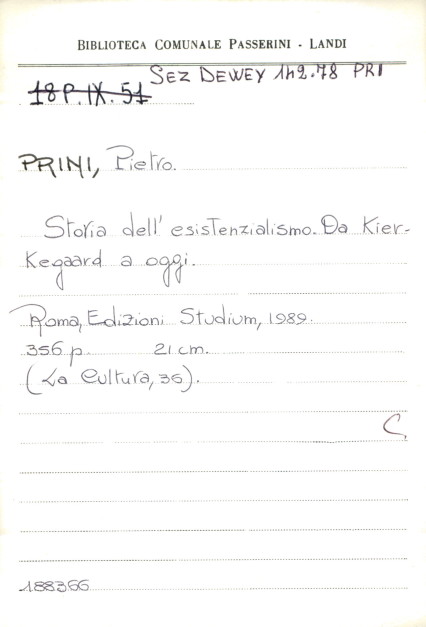 BIBLIOTECA COMUNALE PASSERINI - LANDI
SEZ DEWEY 142.78 PRI
18 P.IX.51
PRINI, Pietro.
Storia dell'esistenzialismo. Da Kier-
kegaard a oggi.
Roma, Edizioni Studium, 1989.
356 p. 21 cm.
(La Cultura, 36).
C.
188366